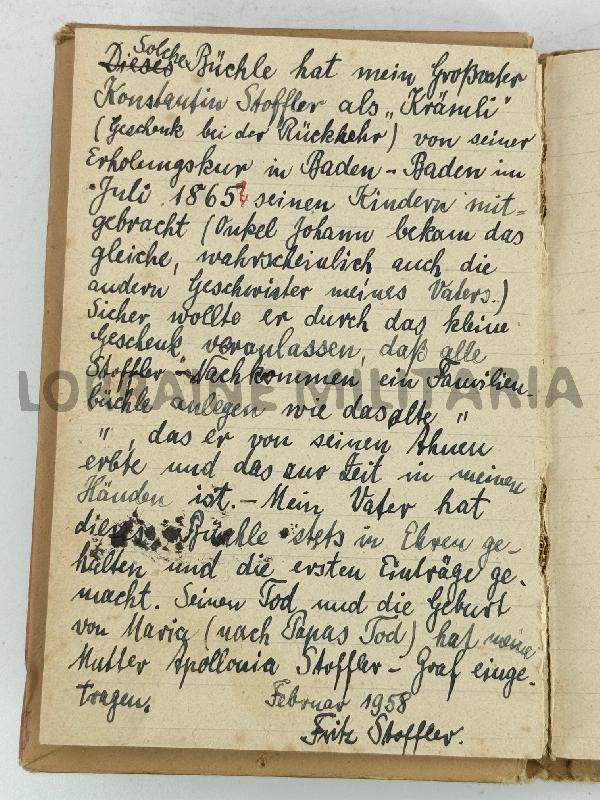 Solche
Dieses Büchle hat mein Großvater
Konstantin Stoffler als „Krämli"
(Geschenk bei der Rückkehr) von seiner
Erholungskur in Baden-Baden im
Juli 1865? seinen Kindern mit=
gebracht (Onkel Johann bekam das
gleiche, wahrscheinlich auch die
andern Geschwister meines Vaters.)
Sicher wollte er durch das kleine
Geschenk veranlassen, daß alle
Stoffler-Nachkommen ein Familien-
büchle anlegen wie das alte "
" , das er von seinen Ahnen
erbte und das zur Zeit in meinen
Händen ist. – Mein Vater hat
dieses Büchle stets in Ehren ge-
halten und die ersten Einträge ge-
macht. Seinen Tod und die Geburt
von Maria (nach Papas Tod) hat meine
Mutter Apollonia Stoffler-Graf einge-
tragen.
Februar 1958
Fritz Stoffler.
LORRAINE MILITARIA